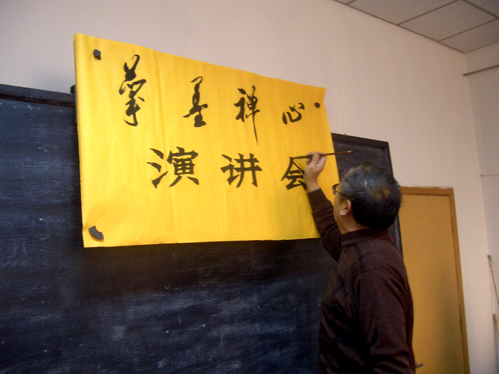 筆墨禅心
演讲会